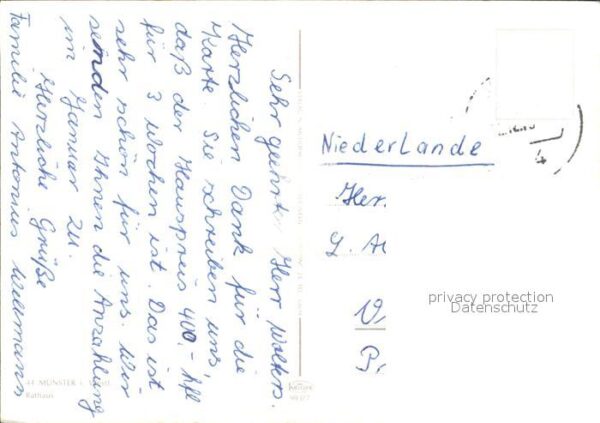 Sehr geehrter Herr Wolters.
Herzlichen Dank für die
Karte. Sie schreiben uns,
daß der Hauspreis 400,- hfl
für 3 Wochen ist. Das ist
sehr schön für uns. Wir
senden Ihnen die Anzahlung
im Januar zu.
Herzliche Grüße
Familie Antonius
44 MÜNSTER
Rathaus
Niederlande
Her.
G. A
V
P.
privacy protection
Datenschutz